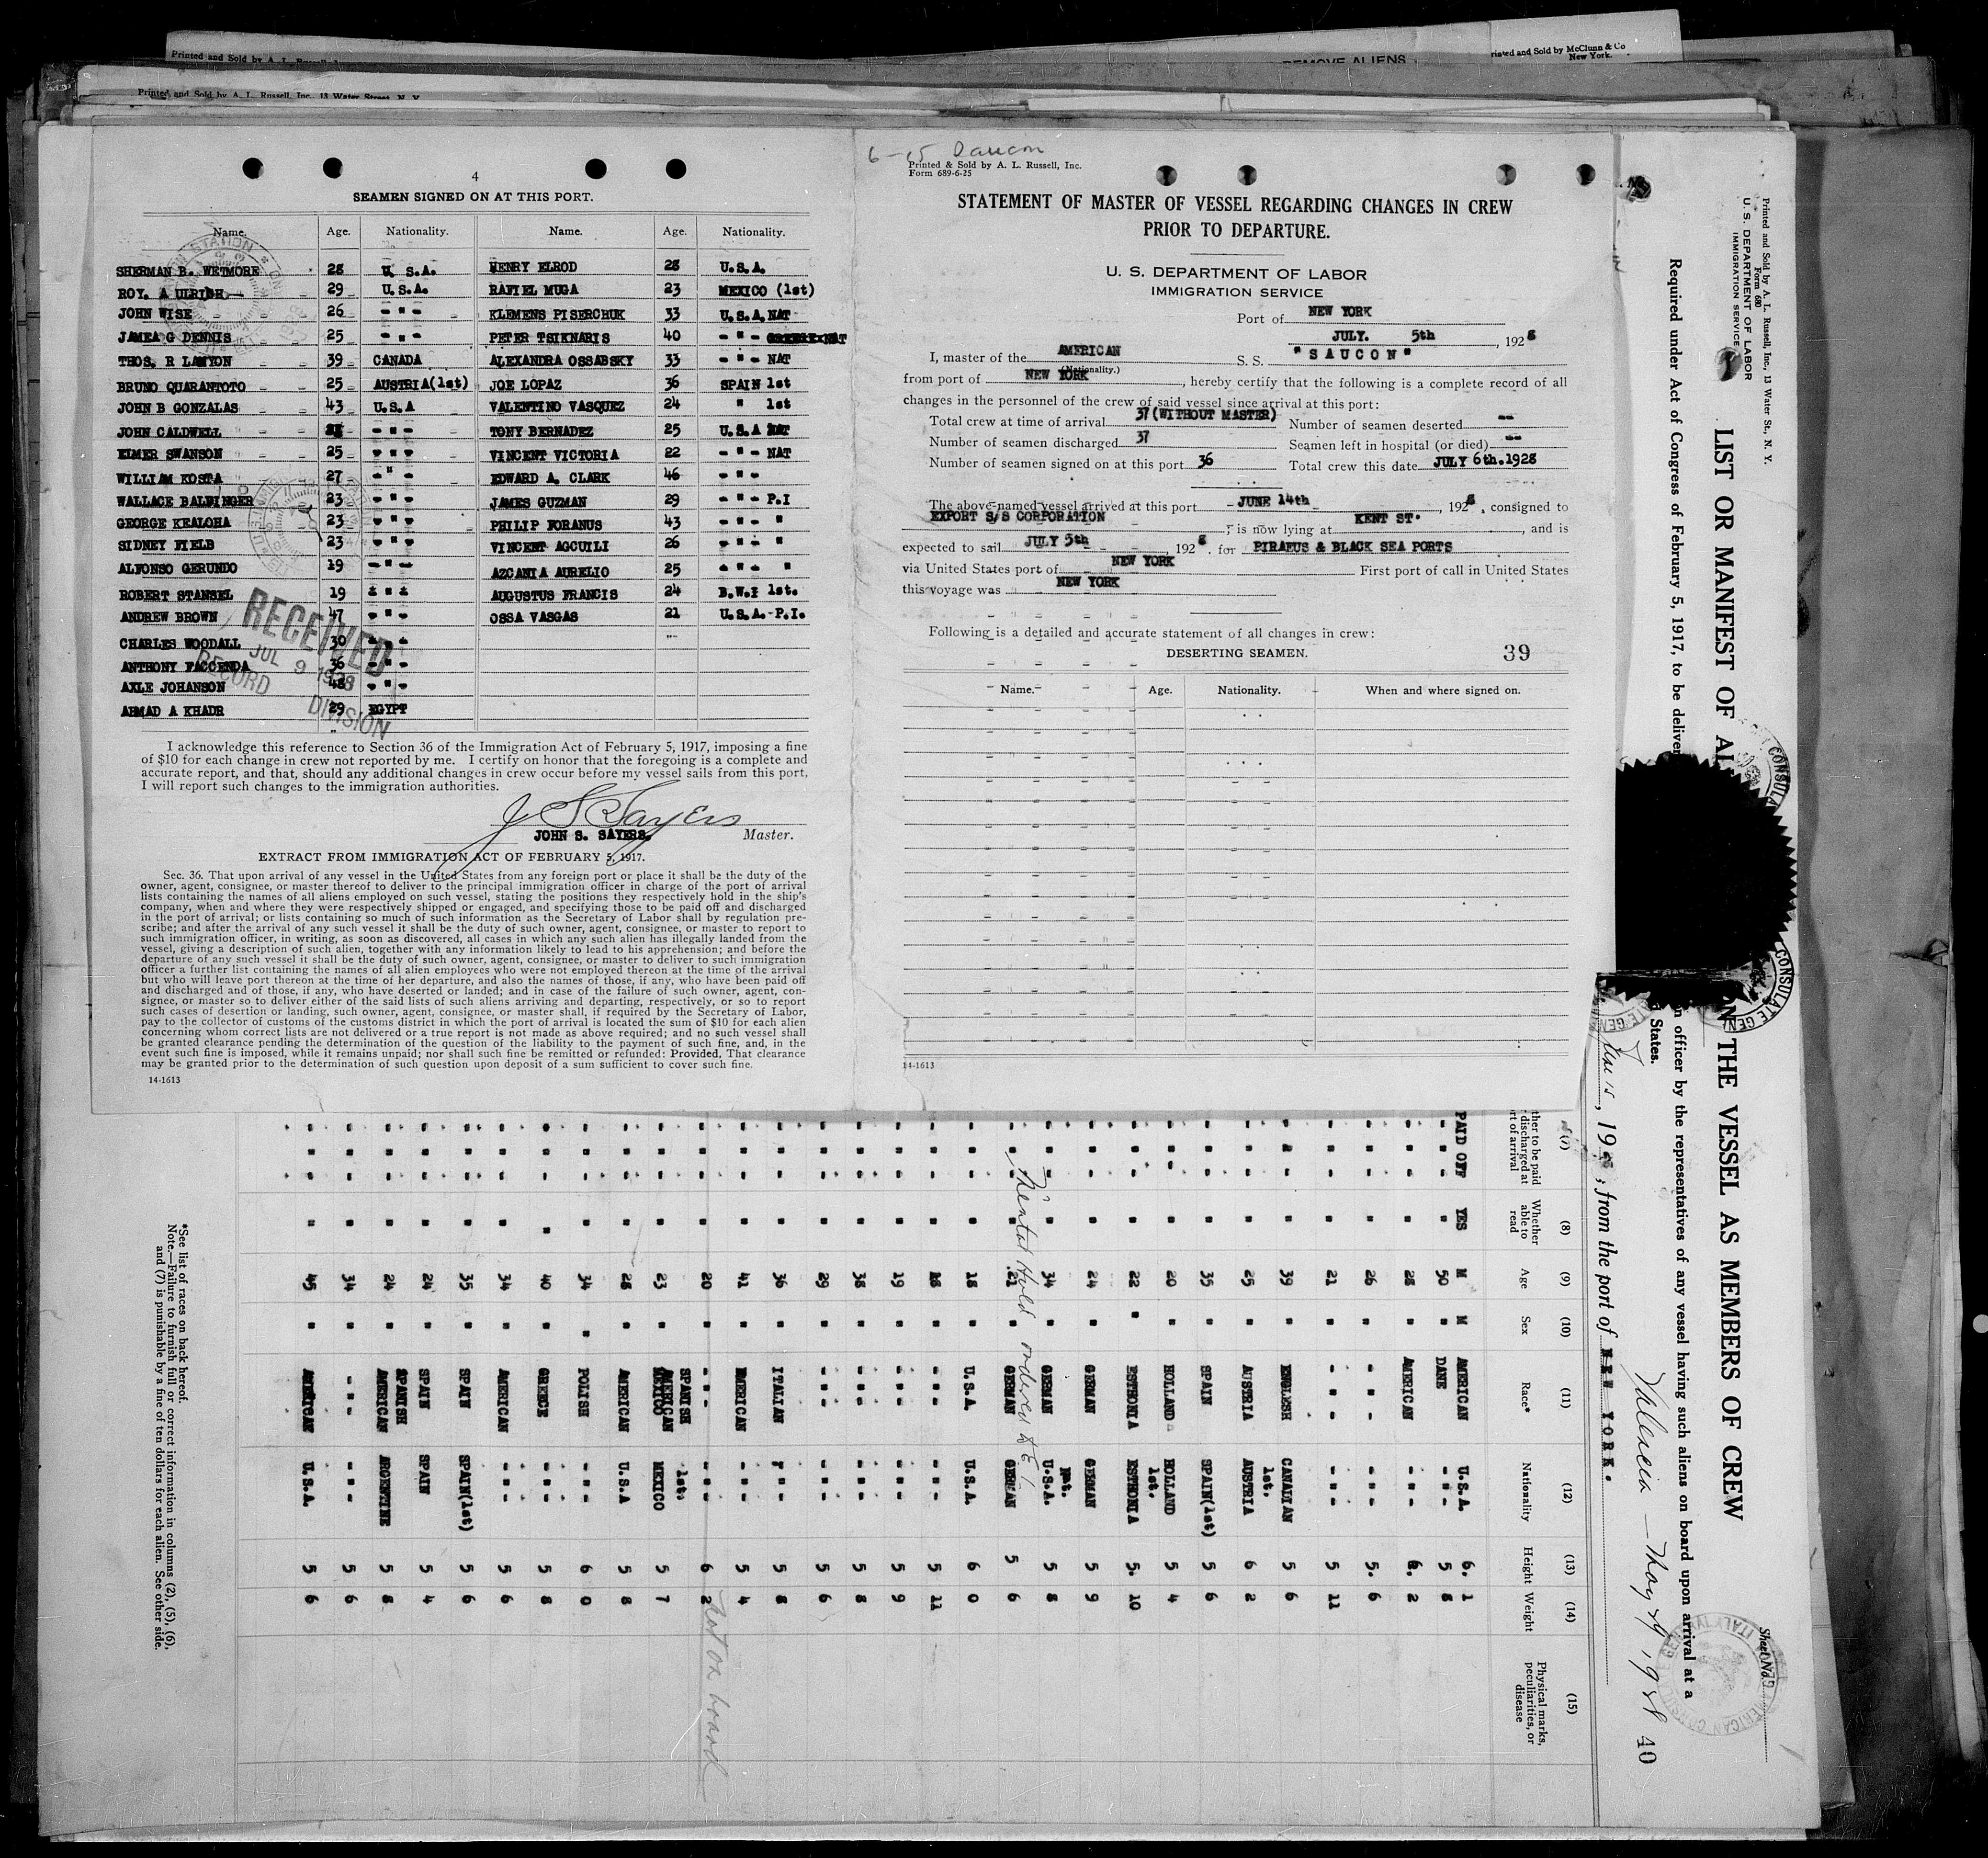 Printed and Sold by A. L. Russell
Printed and Sold by McClunn & Co
New York.
REMOVE ALIENS
Printed and Sold by A. L. Russell, Inc., 13 Water Street, N. Y.
4
SEAMEN SIGNED ON AT THIS PORT.
Name. Age. Nationality. Name. Age. Nationality.
SHERMAN B. WETMORE 28 U. S.A. HENRY ELROD 28 U.S.A.
ROY. A ULRICH 29 U.S.A. RAFIEL MUGA 23 MEXICO (1st)
JOHN WISE 26 - " - KLEMENS PISERCHUK 33 U.S.A. NAT
JAMEA G DENNIS 25 - " - PETER TSIKNARIS 40 - " - NAT
THOS. R LAWYON 39 CANADA ALEXANDRA OSSABSKY 33 - " - NAT
BRUNO QUARANTOTO 25 AUSTRIA(1st) JOE LOPAZ 36 SPAIN 1st
JOHN B GONZALAS 43 U.S.A VALENTINO VASQUEZ 24 " 1st
JOHN CALDWELL - " - TONY BERNADEZ 25 U.S.A NAT
ELMER SWANSON 25 - " - VINCENT VICTORIA 22 - " - NAT
WILLIAM KOSTA 27 - " - EDWARD A. CLARK 46 - " -
WALLACE BALWINGER 23 - " - JAMES GUZMAN 29 - " - P.I
GEORGE KEALOHA 23 - " - PHILIP FORANUS 43 - " - "
SIDNEY FIELB 23 - " - VINCENT AGCUILI 26 - " - "
ALFONSO GERUNDO 19 - " - AZCANIA AURELIO 25 - " - "
ROBERT STANSEL 19 - " - AUGUSTUS FRANCIS 24 B.W.I 1st.
ANDREW BROWN 47 - " - OSSA VASGAS 21 U.S.A.-P.I.
CHARLES WOODALL 30 - " -
ANTHONY FACCENDA 36 - " -
AXLE JOHANSON 48 - " -
AHMAD A KHADR 29 EGYPT
RECEIVED
JUL 9 1928
RECORD DIVISION
I acknowledge this reference to Section 36 of the Immigration Act of February 5, 1917, imposing a fine
of $10 for each change in crew not reported by me. I certify on honor that the foregoing is a complete and
accurate report, and that, should any additional changes in crew occur before my vessel sails from this port,
I will report such changes to the immigration authorities.
J S Sayers
JOHN S. SAYERS. Master.
EXTRACT FROM IMMIGRATION ACT OF FEBRUARY 5, 1917.
Sec. 36. That upon arrival of any vessel in the United States from any foreign port or place it shall be the duty of the
owner, agent, consignee, or master thereof to deliver to the principal immigration officer in charge of the port of arrival
lists containing the names of all aliens employed on such vessel, stating the positions they respectively hold in the ship's
company, when and where they were respectively shipped or engaged, and specifying those to be paid off and discharged
in the port of arrival; or lists containing so much of such information as the Secretary of Labor shall by regulation pre-
scribe; and after the arrival of any such vessel it shall be the duty of such owner, agent, consignee, or master to report to
such immigration officer, in writing, as soon as discovered, all cases in which any such alien has illegally landed from the
vessel, giving a description of such alien, together with any information likely to lead to his apprehension; and before the
departure of any such vessel it shall be the duty of such owner, agent, consignee, or master to deliver to such immigration
officer a further list containing the names of all alien employees who were not employed thereon at the time of the arrival
but who will leave port thereon at the time of her departure, and also the names of those, if any, who have been paid off
and discharged and of those, if any, who have deserted or landed; and in case of the failure of such owner, agent, con-
signee, or master so to deliver either of the said lists of such aliens arriving and departing, respectively, or so to report
such cases of desertion or landing, such owner, agent, consignee, or master shall, if required by the Secretary of Labor,
pay to the collector of customs of the customs district in which the port of arrival is located the sum of $10 for each alien
concerning whom correct lists are not delivered or a true report is not made as above required; and no such vessel shall
be granted clearance pending the determination of the question of the liability to the payment of such fine, and, in the
event such fine is imposed, while it remains unpaid; nor shall such fine be remitted or refunded: Provided, That clearance
may be granted prior to the determination of such question upon deposit of a sum sufficient to cover such fine.
14-1613
6-15 Saucon
Printed & Sold by A. L. Russell, Inc.
Form 689-6-25
STATEMENT OF MASTER OF VESSEL REGARDING CHANGES IN CREW
PRIOR TO DEPARTURE.
U. S. DEPARTMENT OF LABOR
IMMIGRATION SERVICE
Port of NEW YORK
JULY. 5th, 1928
I, master of the AMERICAN S. S. "SAUCON"
(Nationality.)
from port of NEW YORK, hereby certify that the following is a complete record of all
changes in the personnel of the crew of said vessel since arrival at this port:
Total crew at time of arrival 37(WITHOUT MASTER) Number of seamen deserted --
Number of seamen discharged 37 Seamen left in hospital (or died) --
Number of seamen signed on at this port 36 Total crew this date JULY 6th.1928
The above-named vessel arrived at this port JUNE 14th, 1928, consigned to
EXPORT S/S CORPORATION, is now lying at KENT ST., and is
expected to sail JULY 5th, 1928. for PIRAEUS & BLACK SEA PORTS
via United States port of NEW YORK First port of call in United States
this voyage was NEW YORK
Following is a detailed and accurate statement of all changes in crew:
DESERTING SEAMEN. 39
Name. Age. Nationality. When and where signed on.
14-1613
Printed and Sold by A. L. Russell, Inc., 13 Water St., N. Y.
Form 680
U. S. DEPARTMENT OF LABOR
IMMIGRATION SERVICE
Sheet No.
LIST OR MANIFEST OF AL
N THE VESSEL AS MEMBERS OF CREW
Required under Act of Congress of February 5, 1917, to be deliver
n officer by the representatives of any vessel having such aliens on board upon arrival at a
d States.
Valencia - May 29, 1928 40
, 192, from the port of NEW YORK.
(7) (8) (9) (10) (11) (12) (13) (14) (15)
ther to be paid discharged at rt of arrival
Whether able to read
Age Sex Race* Nationality Height Weight
Physical marks, peculiarities, or disease
PAID OFF YES M M AMERICAN U.S.A. 6. 1
" " " " 50 " DANE - " - 5 8
" " " " 28 " AMERICAN - " - 6. 2
" " " " 26 " - " - - " - 5. 6
" " " " 21 " - " - - " - 5 11
" " " " 39 " ENGLESH CANADIAN 1st. 5 6
" " " " 25 " AUSTRIA AUSTRIA 6 2
" " " " 35 " SPAIN SPAIN(1st) 5 6
" " " " 20 " HOLLAND HOLLAND 1st. 5 4
" " " " 22 " ESTHONIA ESTHONIA 5. 10
" " " " 24 " GERMAN GERMAN 5 9
" " " " 34 " GERMAN U.S.A. nat. 5 8
" " " " 21 " GERMAN GERMAN 5 6
Mental Hold ordered to E I
" " " " 18 " U.S.A. U.S.A. 6 0
" " " " " - " - - " - 5 11
" " " " 19 " - " - - " - 5 9
" " " " 38 " - " - - " - 5 8
" " " " 29 " - " - - " - 5 6
" " " " 36 " ITALIAN " - 5 8
" " " " 41 " AMERICAN - " - 5 4
" " " " 20 " - " - - " - 6 2
Not on board
" " " " 23 " SPANISH AMERICAN MEXICO 1st. 5 7
" " " " 28 " AMERICAN U.S.A 5 8
" " " " 34 " POLISH - " - 6 0
" " " " 40 " GREECE - " - 5 8
" " " " 34 " AMERICAN - " - 5 6
" " " " 35 " SPAIN SPAIN(1st) 5 6
" " " " 24 " SPAIN SPAIN 5 4
" " " " 24 " SPANISH AMERICAN ARGENTINE 5 8
" " " " 34 " - " - - " - 5 6
" " " " 45 " AMERICAN U.S.A. 5 6
*See list of races on back hereof.
Note.—Failure to furnish full or correct information in columns (2), (5), (6),
and (7) is punishable by a fine of ten dollars for each alien. See other side.